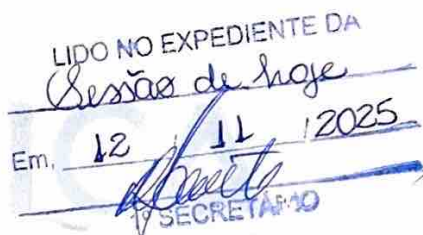 LIDO NO EXPEDIENTE DA
Sessão de hoje
Em, 12 / 11 / 2025
1º SECRETÁRIO